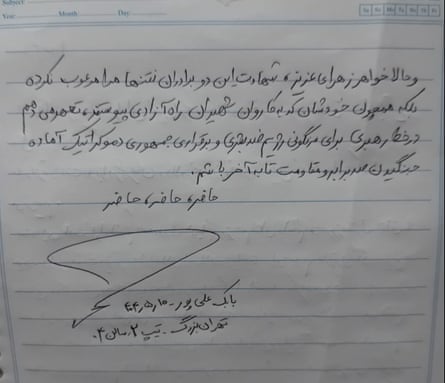 Subject:
Year: Month Day
Sa Su Mo Tu We Th Fr
و حالا خواهر زهرای عزیز، شهادت این دو برادران نه تنها مرا مرعوب نکرده
بلکه همچون خودشان که به کاروان شهیدان راه آزادی پیوستند، تعهد می‌دهم
در خطا رهبری برای سرنگونی رژیم ضدبشری و برقراری جمهوری دموکراتیک آماده
جنگیدن صد برابر و مقاومت تا به آخر باشم.
حاضر، حاضر، حاضر
بابک علی پور
تهران بزرگ - تیپ ۲، سالن ۴